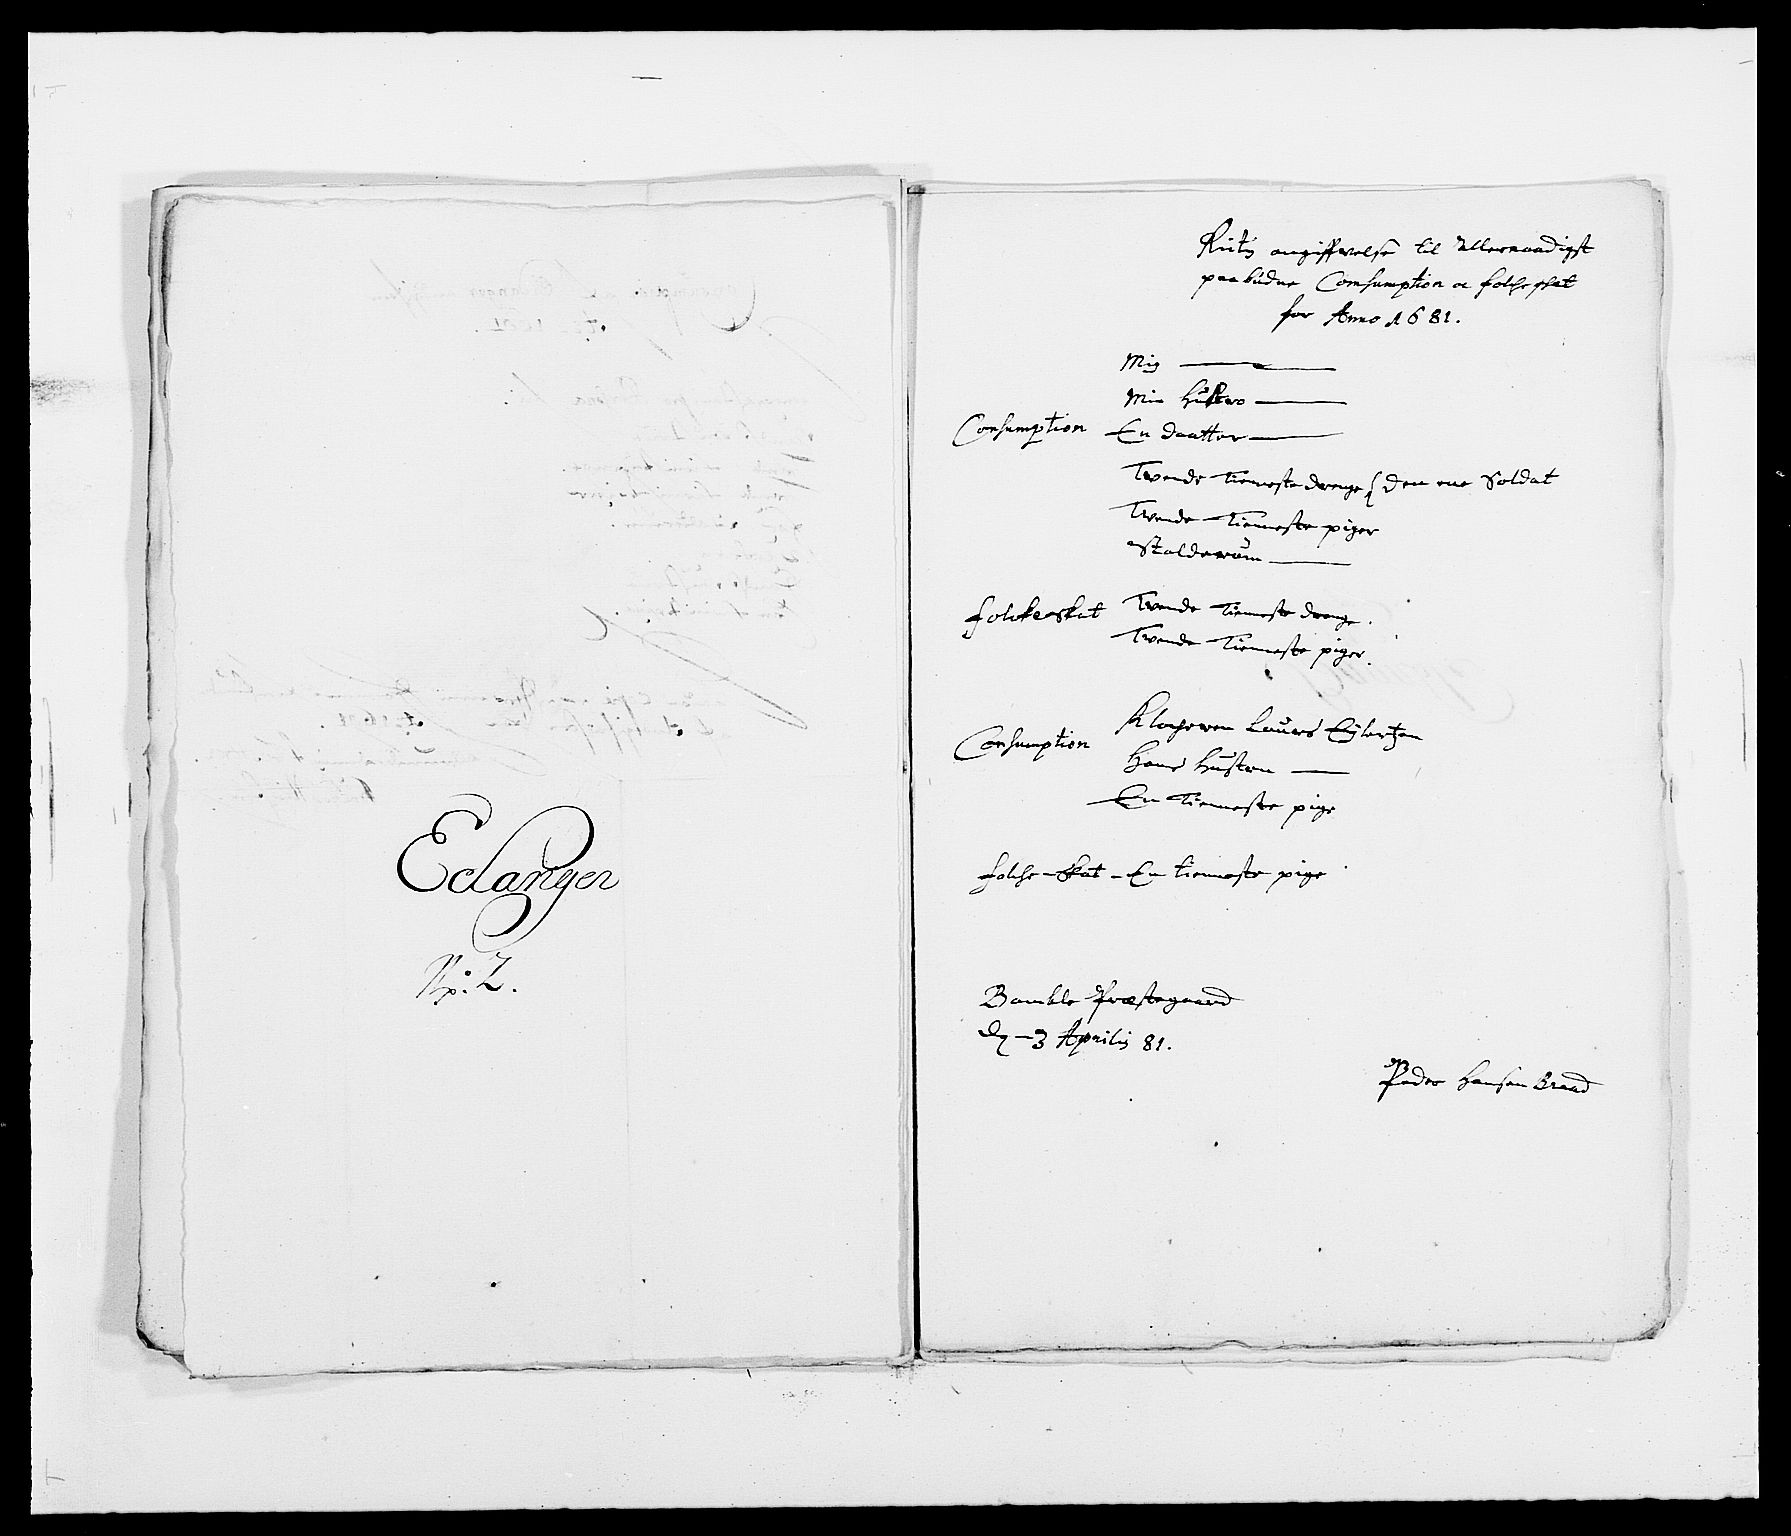 Edanger
No: 2.
Rictig angiffvelse til allernaadigst
paabudne Comsumption oc folcheskat
for Anno 1681.
Mig
Min Hustro
Consumption En daatter
Tvende tienneste drenge den ene Soldat
Tvende tienneste piger
folckeskat Tvende tienneste drenge.
Tvende tienneste piger.
Consumption Klocheren Laurs Eylertzen
Hans Hustru
En tienneste pige
folche-skat - En tienneste pige
Bamble Præstegaard
dn 3 Aprilis 81.
Peder Hansen Braad